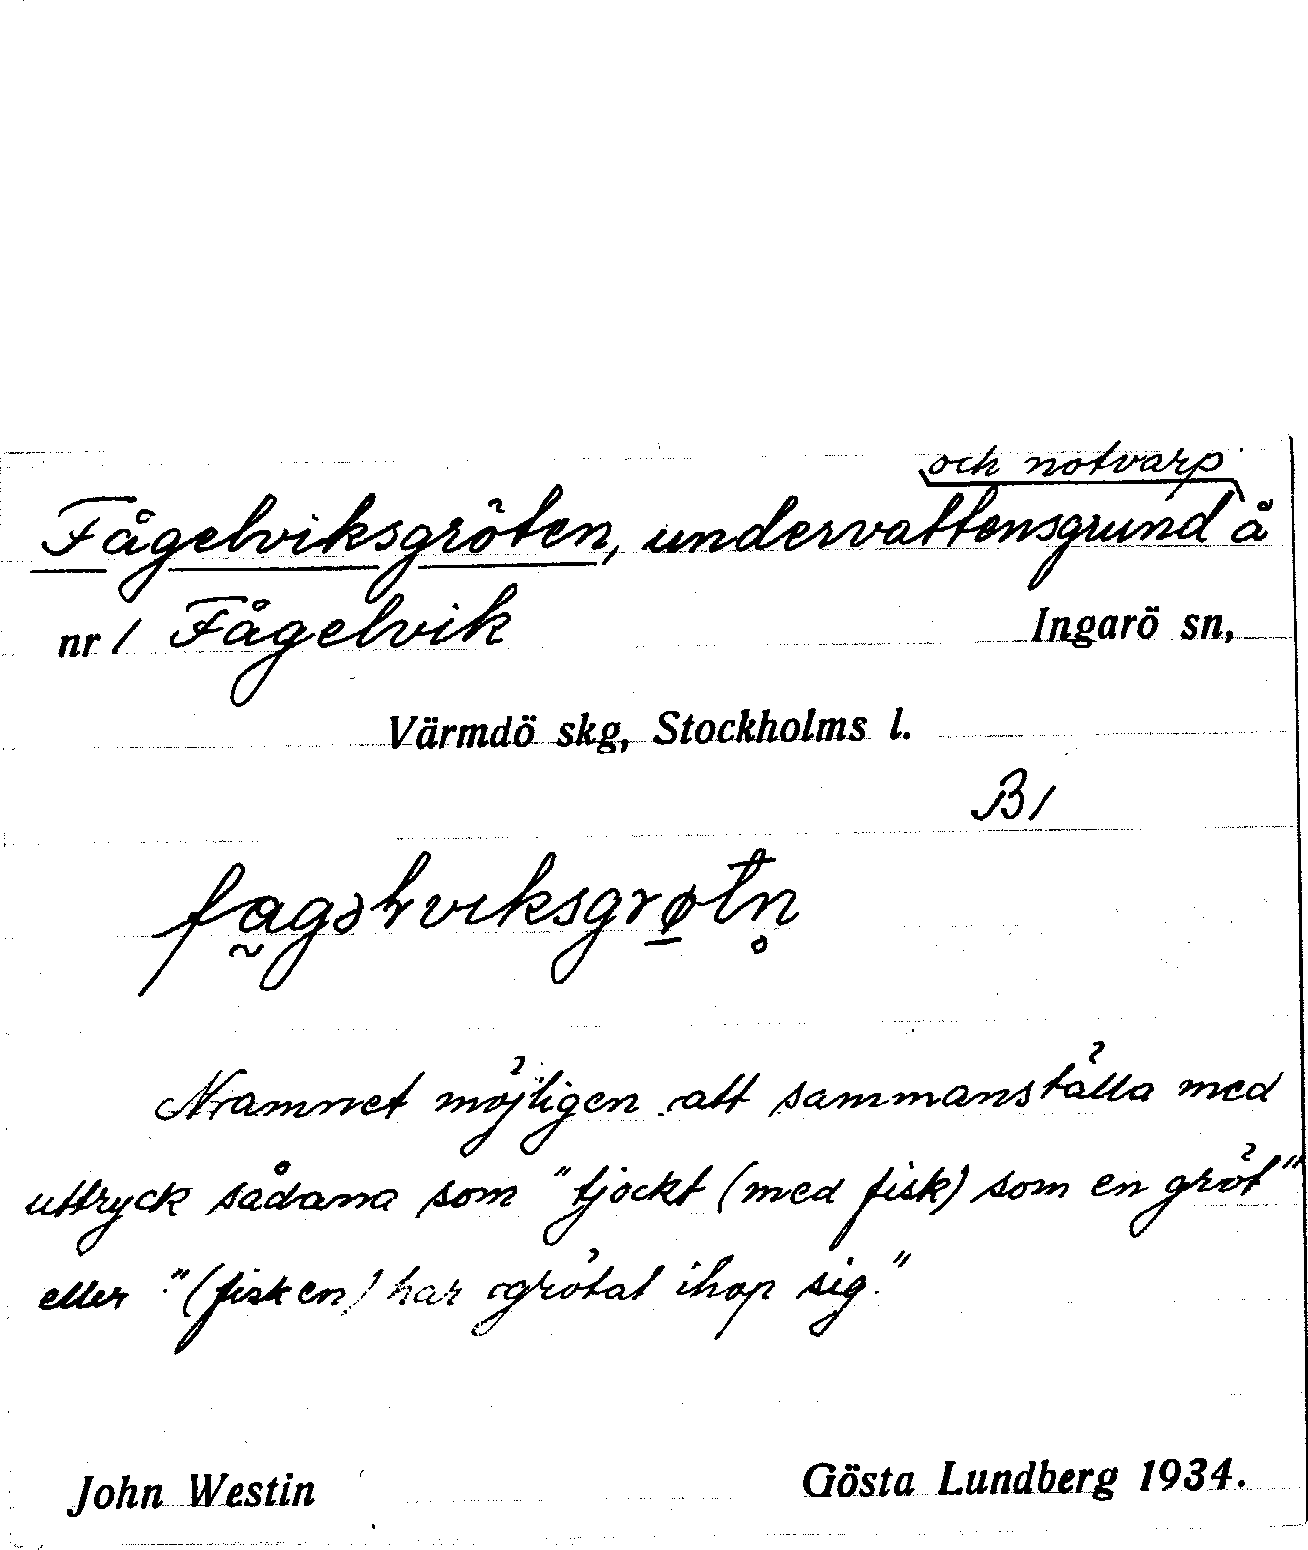 och notvarp
Fågelviksgröten, undervattensgrund å
nr 1 Fågelvik Ingarö sn,
Värmdö skg, Stockholms l.
B1
Namnet möjligen att sammanställa med
uttryck sådana som "tjockt (med fisk) som en gröt"
eller "(fisken) har grötat ihop sig."
John Westin Gösta Lundberg 1934.